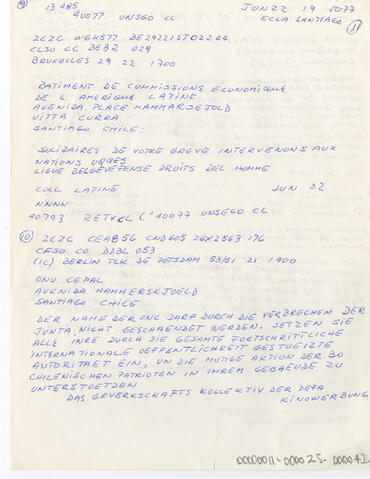 ⑨ 13 485 JUN 22 19 50:77
40077 UNSGO CL ECLA SANTIAGO ①
ZCZC WGH577 BE29221ST02244
CLSO CC BEBR 029
BRUXELLES 29 22 1700
BATIMENT DE COMMISSIONS ECONOMIQUE
DE L AMERIQUE LATINE
AVENIDA PLACE HAMMARSEJOLD
VITTA CURRA
SANTIAGO CHILE:
SOLIDAIRES DE VOTRE GREVE INTERVENONS AUX
NATIONS UQQES
LIGUE BELGEVEFENSE DROITS DEL HOMME
COLL LATINE JUN 22
NNNN
40793 RETXCL (" 40077 UNSEGO CL
⑩ ZCZC CEA856 CND605 ZGX2563 176
CFSO CO DDBL 053
(1C) BERLIN TLK DE POTSDAM 53/51 21 1900
ONU CEPAL
AVENIDA HAMMERSKJOELD
SANTIAGO CHILE
DER NAME DER UNC DARF DURCH DIE VERBRECHEN DER
JUNTA NIGHT GESCHAENDET WERDEN. SETZEN SIE
ALLE INRE DURCH DIE GESAMTE FORTSCHRITTLICHE
INTERNATIONALE OEFFENTLICHKEIT GESTUEIZTE
AUTORITAET EIN, UN DIE MUTIGE AKTION DER 30
CHILENISCHEN PATRIOTEN IN IHREM GEBAEUDE ZU
UNTERSTUETZEN
DAS GEVERKSCHAFTS KOLLEKTIV DER DEFA
KINOWERBUNG
0000011-000025-000042